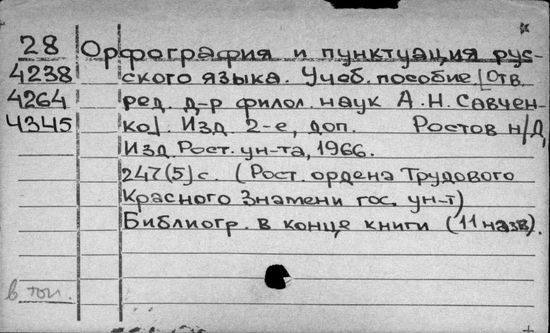 28 Орфография и пунктуация рус-
4238 ского языка. Учеб. пособие [Отв.
4264 ред. д-р филол. наук А.Н. Савчен-
4345 ко]. Изд. 2-е, доп. Ростов н/Д,
Изд. Рост. ун-та, 1966.
247(5)с. (Рост. ордена Трудового
Красного Знамени гос. ун-т)
Библиогр. в конце книги (11 назв).